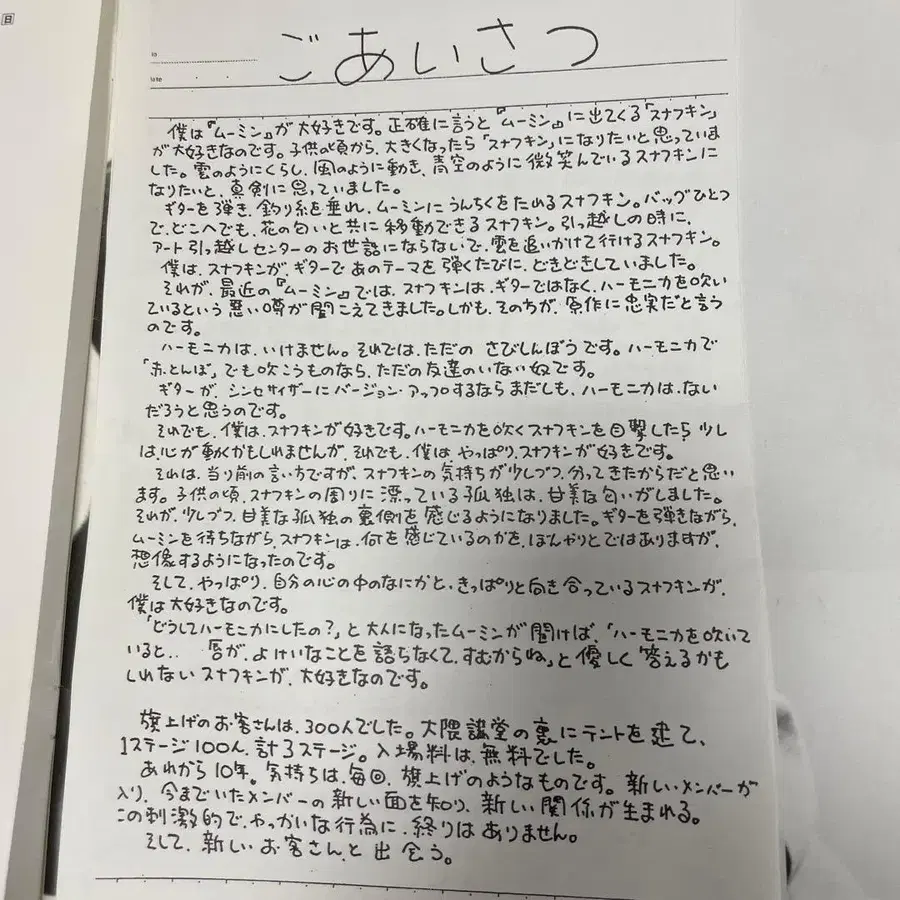 日
ごあいさつ
date
僕は『ムーミン』が大好きです。正確に言うと『ムーミン』に出てくる「スナフキン」
が大好きなのです。子供の頃から、大きくなったら「スナフキン」になりたいと思っていま
した。雲のようにくらし、風のように動き、青空のように微笑んでいるスナフキンに
なりたいと、真剣に思っていました。
ギターを弾き、釣り糸を垂れ、ムーミンにうんちくをたれるスナフキン。バッグひとつ
で、どこへでも、花の匂いと共に移動できるスナフキン。引っ越しの時に、
アート引っ越しセンターのお世話にならないで、雲を追いかけて行けるスナフキン。
僕は、スナフキンが、ギターであのテーマを弾くたびに、どきどきしていました。
それが、最近の『ムーミン』では、スナフキンは、ギターではなく、ハーモニカを吹い
ているという悪い噂が聞こえてきました。しかも、その方が、原作に忠実だと言う
のです。
ハーモニカは、いけません。それでは、ただの さびしんぼうです。ハーモニカで
「赤とんぼ」でも吹こうものなら、ただの友達のいない奴です。
ギターが、シンセサイザーにバージョン・アップするならまだしも、ハーモニカは、ない
だろうと思うのです。
それでも、僕は、スナフキンが好きです。ハーモニカを吹くスナフキンを目撃したら、少し
は、心が動くかもしれませんが、それでも、僕は、やっぱり、スナフキンが好きです。
それは、当り前の言い方ですが、スナフキンの気持ちが少しづつ、分ってきたからだと思い
ます。子供の頃、スナフキンの周りに漂っている孤独は、甘美な匂いがしました。
それが、少しづつ、甘美な孤独の裏側を感じるようになりました。ギターを弾きながら、
ムーミンを待ちながら、スナフキンは、何を感じているのかを、ぼんやりとではありますが、
想像するようになったのです。
そして、やっぱり、自分の心の中のなにかと、きっぱりと向き合っているスナフキンが、
僕は大好きなのです。
「どうしてハーモニカにしたの?」と大人になったムーミンが聞けば、「ハーモニカを吹いて
いると‥ 唇が、よけいなことを語らなくて、すむからね」と優しく答えるかも
しれないスナフキンが、大好きなのです。
旗上げのお客さんは、300人でした。大隈講堂の裏にテントを建て、
1ステージ100人、計3ステージ。入場料は、無料でした。
あれから10年。気持ちは、毎回、旗上げのようなものです。新しいメンバーが
入り、今までいたメンバーの新しい面を知り、新しい関係が生まれる。
この刺激的で、やっかいな行為に、終りはありません。
そして、新しいお客さんと出会う。